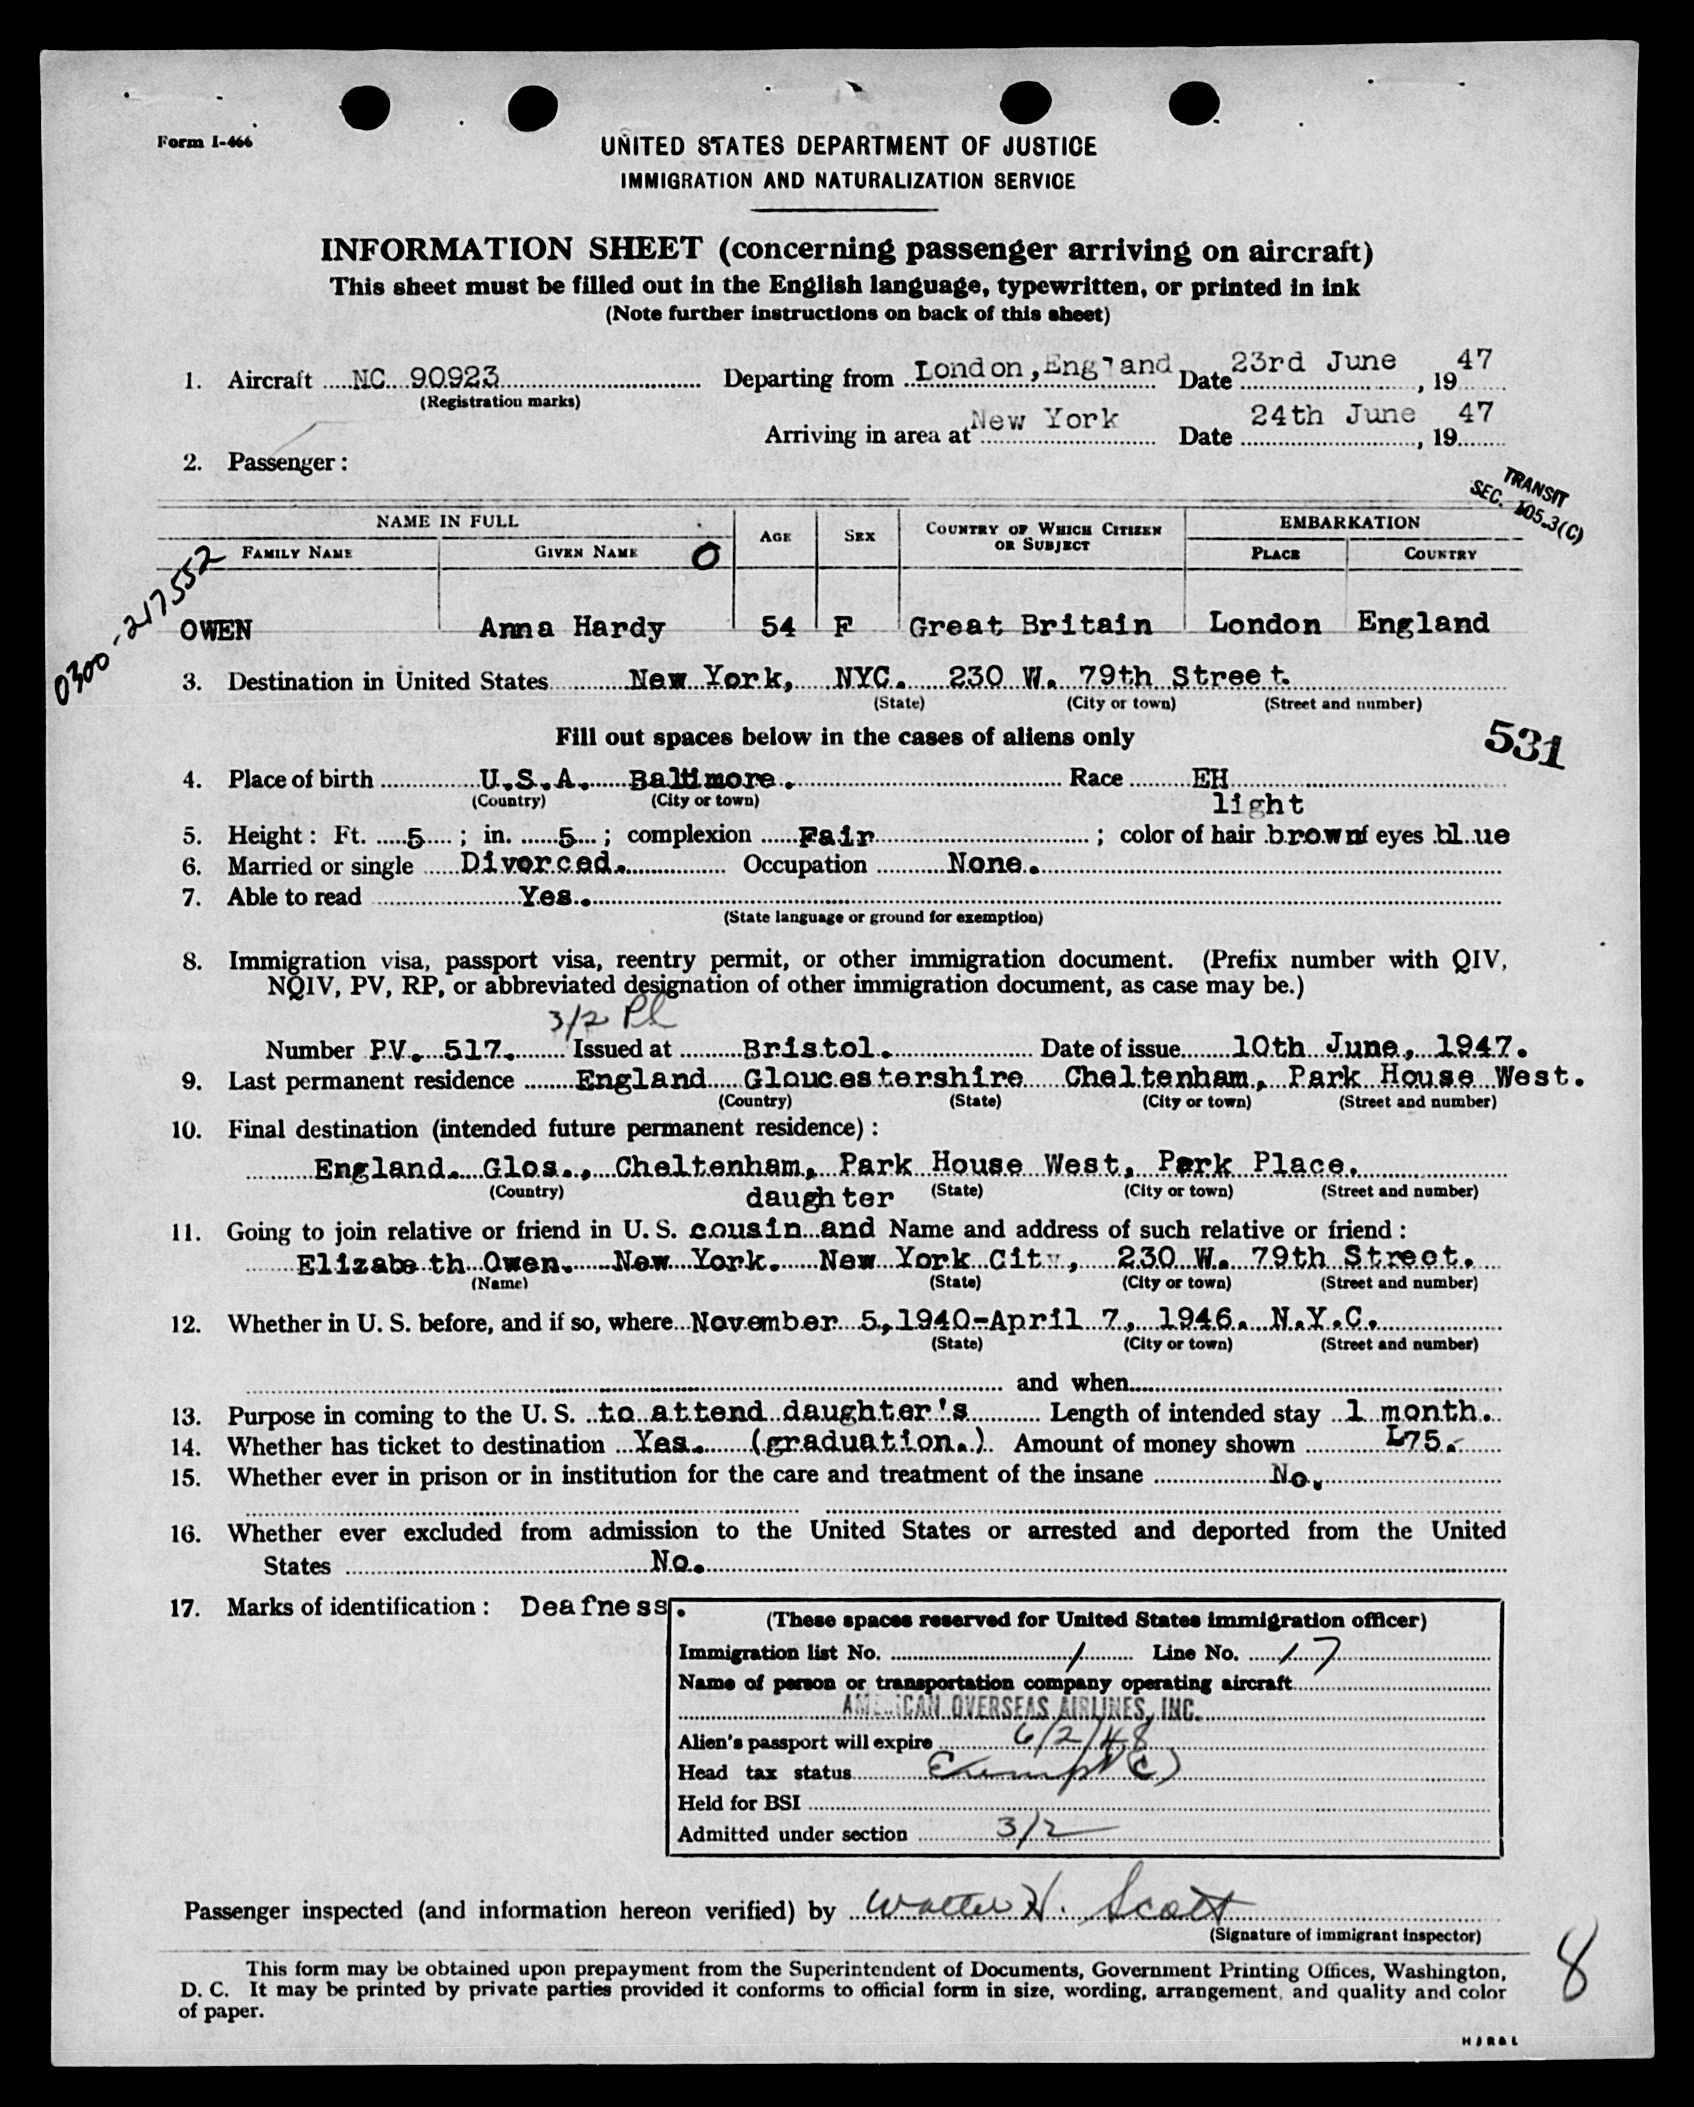 Form I-466
UNITED STATES DEPARTMENT OF JUSTICE
IMMIGRATION AND NATURALIZATION SERVICE
INFORMATION SHEET (concerning passenger arriving on aircraft)
This sheet must be filled out in the English language, typewritten, or printed in ink
(Note further instructions on back of this sheet)
1. Aircraft NC 90923 Departing from London, England Date 23rd June, 1947
(Registration marks)
Arriving in area at New York Date 24th June, 1947
2. Passenger:
TRANSIT
SEC. 105.3(C)
NAME IN FULL AGE SEX COUNTRY OF WHICH CITIZEN OR SUBJECT EMBARKATION
FAMILY NAME GIVEN NAME O PLACE COUNTRY
0300-217552
OWEN Anna Hardy 54 F Great Britain London England
3. Destination in United States New York, NYC. 230 W. 79th Street.
(State) (City or town) (Street and number)
Fill out spaces below in the cases of aliens only
531
4. Place of birth U.S.A. Baltimore. Race EH
(Country) (City or town)
light
5. Height: Ft. 5; in. 5; complexion Fair; color of hair brown of eyes blue
6. Married or single Divorced. Occupation None.
7. Able to read Yes.
(State language or ground for exemption)
8. Immigration visa, passport visa, reentry permit, or other immigration document. (Prefix number with QIV,
NQIV, PV, RP, or abbreviated designation of other immigration document, as case may be.)
3/2 Pl
Number P.V. 517. Issued at Bristol. Date of issue 10th June, 1947.
9. Last permanent residence England Gloucestershire Cheltenham, Park House West.
(Country) (State) (City or town) (Street and number)
10. Final destination (intended future permanent residence):
England. Glos., Cheltenham, Park House West, Park Place.
(Country) (State) (City or town) (Street and number)
daughter
11. Going to join relative or friend in U. S. cousin and Name and address of such relative or friend:
Elizabeth Owen. New York. New York City, 230 W. 79th Street.
(Name) (State) (City or town) (Street and number)
12. Whether in U. S. before, and if so, where November 5, 1940-April 7, 1946. N.Y.C.
(State) (City or town) (Street and number)
and when
13. Purpose in coming to the U. S. to attend daughter's Length of intended stay 1 month.
14. Whether has ticket to destination Yes. (graduation.) Amount of money shown L75.-
15. Whether ever in prison or in institution for the care and treatment of the insane No.
16. Whether ever excluded from admission to the United States or arrested and deported from the United
States No.
17. Marks of identification: Deafness.
(These spaces reserved for United States immigration officer)
Immigration list No. 1 Line No. 17
Name of person or transportation company operating aircraft
AMERICAN OVERSEAS AIRLINES, INC.
Alien's passport will expire 6/2/48
Head tax status Exempt (C)
Held for BSI
Admitted under section 3/2
Passenger inspected (and information hereon verified) by Walter H. Scott
(Signature of immigrant inspector)
8
This form may be obtained upon prepayment from the Superintendent of Documents, Government Printing Offices, Washington,
D. C. It may be printed by private parties provided it conforms to official form in size, wording, arrangement, and quality and color
of paper.
HJR&L